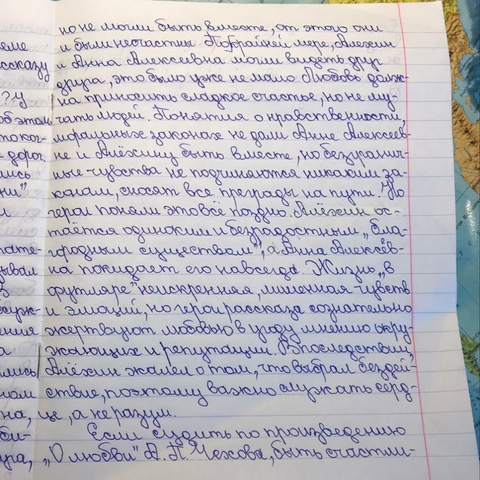 но не могли быть вместе, от этого они
еме и были несчастны. По крайней мере, Алехин
ссказу и Анна Алексеевна могли видеть друг
друга, это было уже не мало. Любовь долж-
?у на приносить сладкое счастье, но не му-
об этом чать людей. Понятия о нравственности,
моральных законах не дали Анне Алексеев-
дорог не и Алёхину быть вместе, но безгранич-
лись ные чувства не подчиняются никаким за-
ни" конам, сносят все преграды на пути! Но
и герои поняли это всё поздно. Алёхин ос-
таётся одиноким и безрадостным, „бла-
городным существом", а Анна Алексеев-
на покидает его навсегда. Жизнь „в
футляре" неискренняя, лишенная чувств
и эмоций, но герои рассказа сознательно
ения жертвуют любовью в угоду мнению окру-
а жающих и репутации. Впоследствии,
лись Алёхин жалел о том, что выбрал бездей-
нам ствие, поэтому важно служать серд-
на, це, а не разум.
би- Если судить по произведению
ура, „О любви" А. П. Чехова, быть счастли-